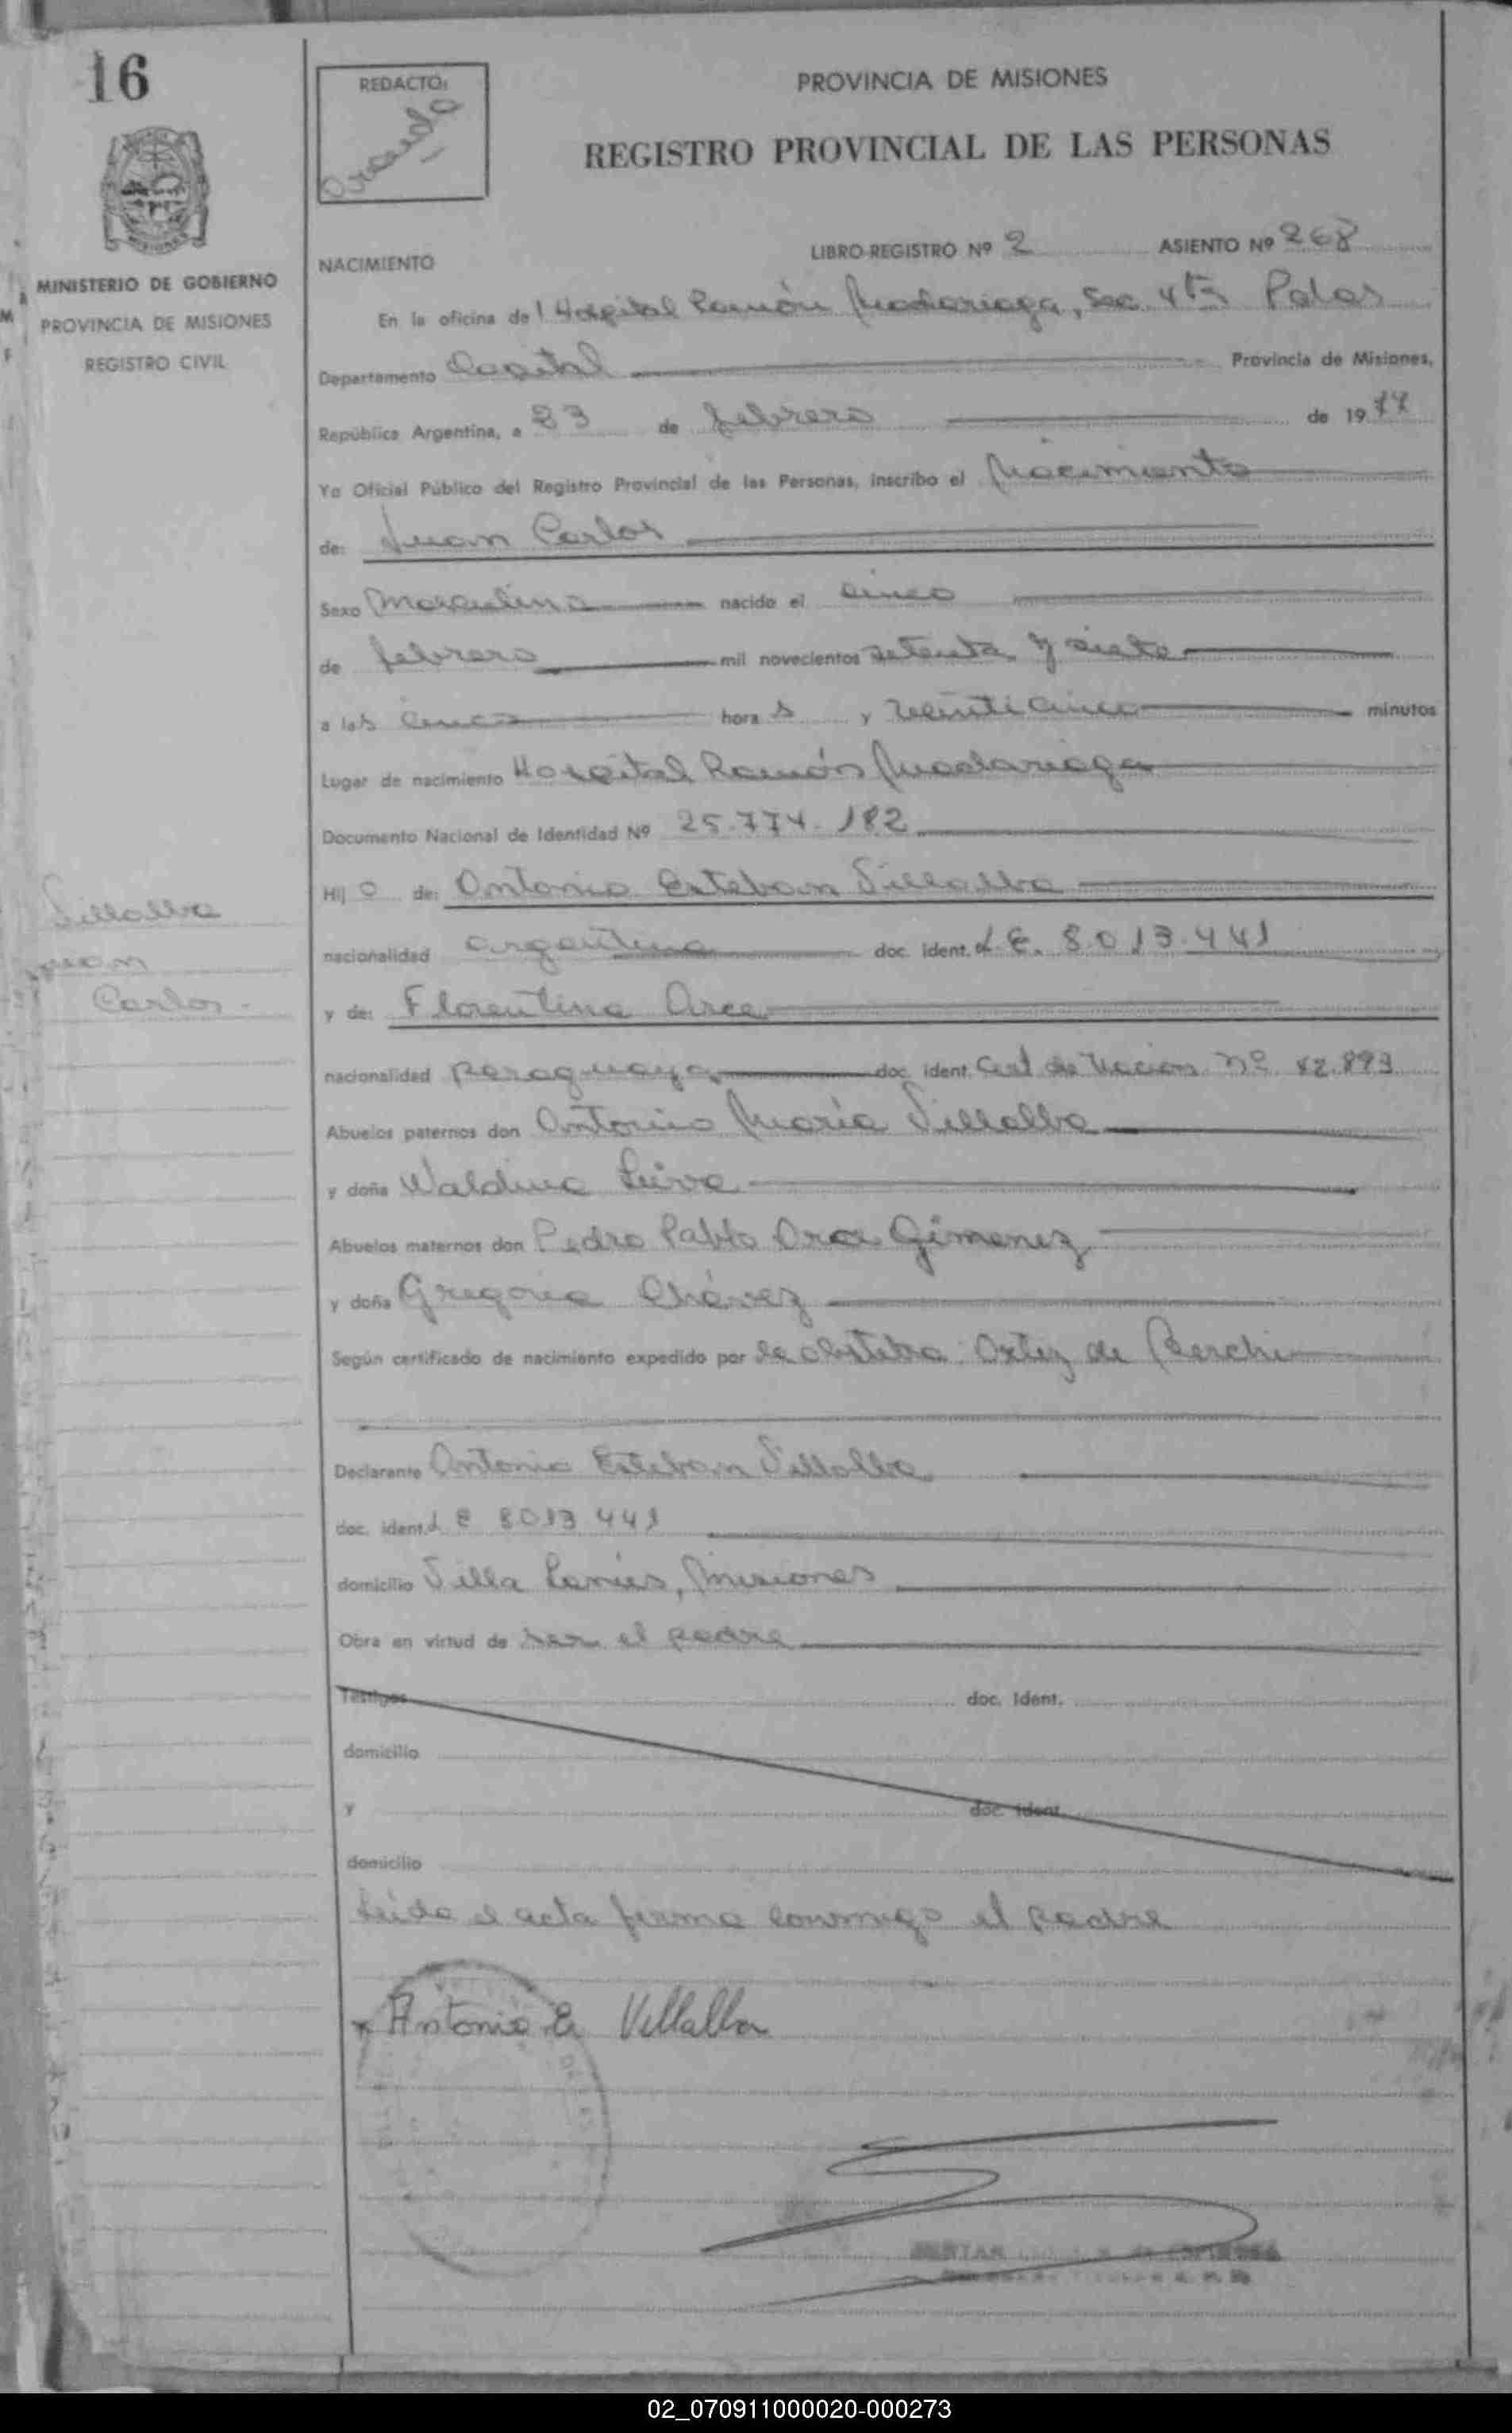 16
REDACTO:
PROVINCIA DE MISIONES
REGISTRO PROVINCIAL DE LAS PERSONAS
MINISTERIO DE GOBIERNO
PROVINCIA DE MISIONES
REGISTRO CIVIL
NACIMIENTO
LIBRO-REGISTRO Nº 2 ASIENTO Nº 268
En la oficina del Hospital Ramón Madariaga, Sec 4ta Pdas
Departamento Capital Provincia de Misiones,
República Argentina, a 23 de febrero de 1977
Yo Oficial Público del Registro Provincial de las Personas, inscribo el Nacimiento
de: Juan Carlos
Sexo Masculino nacido el cinco
de febrero mil novecientos setenta y siete
a las cinco horas y veinticinco minutos
Lugar de nacimiento Hospital Ramón Madariaga
Documento Nacional de Identidad Nº 25.774.182
Hijo de: Antonio Esteban Villalba
nacionalidad argentina doc. ident. L E. 8.013.441
Villalba
Juan
Carlos
y de: Florentina Arce
nacionalidad paraguaya doc. ident. Cert de Nacion nº 82.893
Abuelos paternos don Antonio María Villalba
y doña Waldina Leiva
Abuelos maternos don Pedro Pablo Arce Gimenez
y doña Gregoria Chávez
Según certificado de nacimiento expedido por la obstetra Ortiz de
Declarante Antonio Esteban Villalba
doc. ident. L E 8013 441
domicilio Villa Lanús, Misiones
Obra en virtud de ser el padre
Testigos doc. ident.
domicilio
y doc. ident.
domicilio
Leída el acta firma conmigo el padre
Antonio E. Villalba
02_070911000020-000273